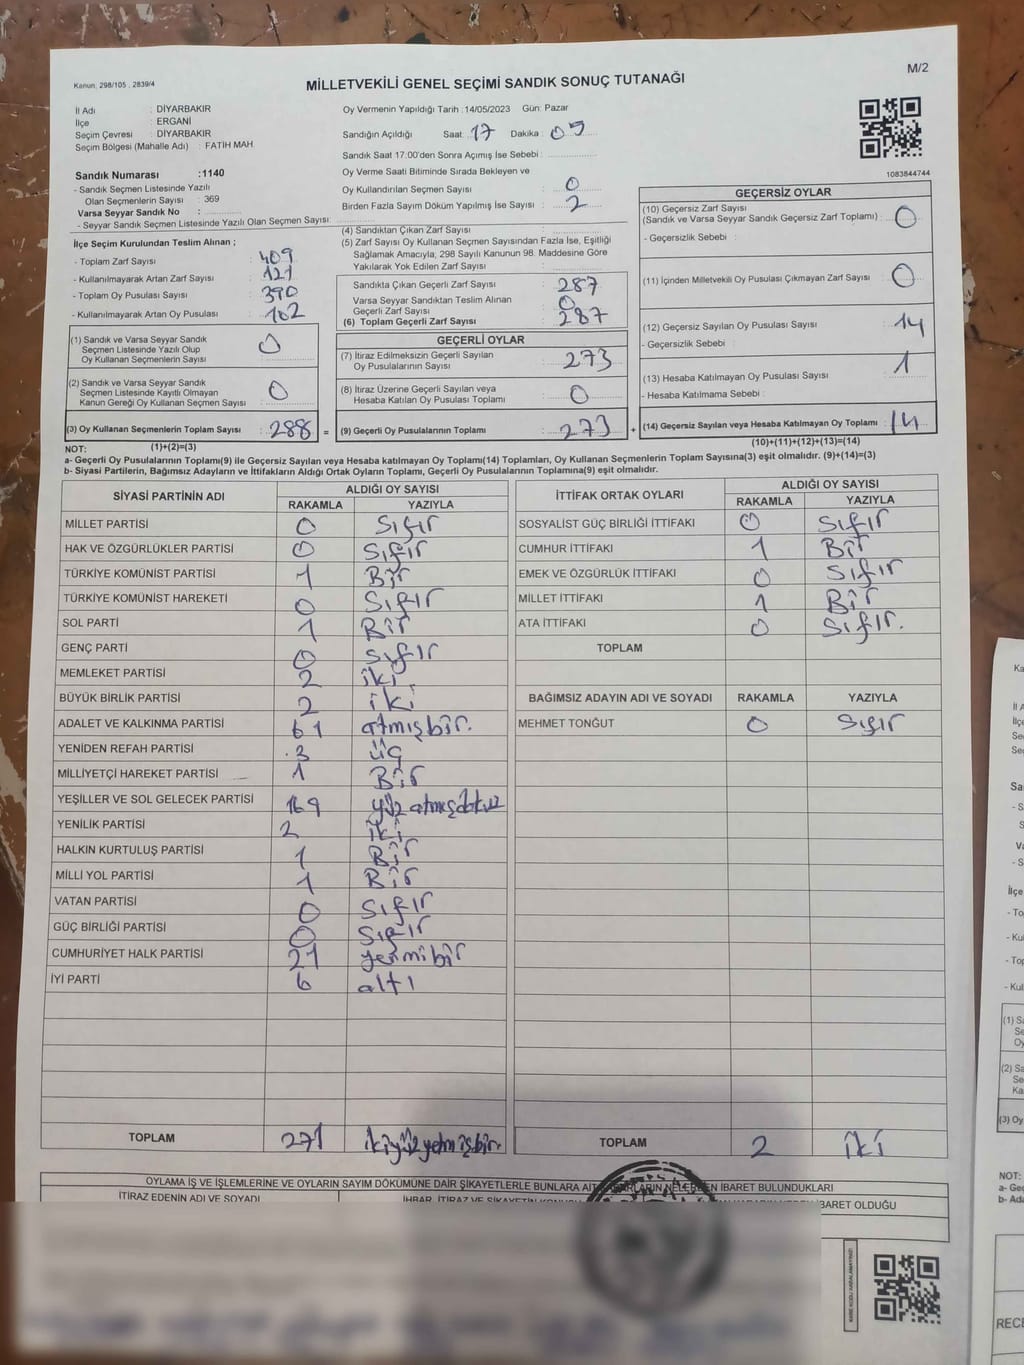 M/2
Kanun: 298/105 , 2839/4
MİLLETVEKİLİ GENEL SEÇİMİ SANDIK SONUÇ TUTANAĞI
İl Adı : DİYARBAKIR
İlçe : ERGANİ
Seçim Çevresi : DİYARBAKIR
Seçim Bölgesi (Mahalle Adı) : FATİH MAH.
Oy Vermenin Yapıldığı Tarih :14/05/2023 Gün: Pazar
Sandığın Açıldığı Saat : 17 Dakika : 05
Sandık Saat 17:00'den Sonra Açımış İse Sebebi :
Oy Verme Saati Bitiminde Sırada Bekleyen ve
Oy Kullandırılan Seçmen Sayısı : 0
Birden Fazla Sayım Döküm Yapılmış İse Sayısı : 2
1083844744
Sandık Numarası :1140
- Sandık Seçmen Listesinde Yazılı
Olan Seçmenlerin Sayısı : 369
Varsa Seyyar Sandık No :
- Seyyar Sandık Seçmen Listesinde Yazılı Olan Seçmen Sayısı:
İlçe Seçim Kurulundan Teslim Alınan ;
- Toplam Zarf Sayısı : 409
- Kullanılmayarak Artan Zarf Sayısı : 121
- Toplam Oy Pusulası Sayısı : 390
- Kullanılmayarak Artan Oy Pusulası : 102
(1) Sandık ve Varsa Seyyar Sandık
Seçmen Listesinde Yazılı Olup
Oy Kullanan Seçmenlerin Sayısı : 0
(2) Sandık ve Varsa Seyyar Sandık
Seçmen Listesinde Kayıtlı Olmayan
Kanun Gereği Oy Kullanan Seçmen Sayısı : 0
(3) Oy Kullanan Seçmenlerin Toplam Sayısı : 288 =
(1)+(2)=(3)
(4) Sandıktan Çıkan Zarf Sayısı :
(5) Zarf Sayısı Oy Kullanan Seçmen Sayısından Fazla İse, Eşitliği
Sağlamak Amacıyla, 298 Sayılı Kanunun 98. Maddesine Göre
Yakılarak Yok Edilen Zarf Sayısı :
Sandıkta Çıkan Geçerli Zarf Sayısı : 287
Varsa Seyyar Sandıktan Teslim Alınan
Geçerli Zarf Sayısı : 0
(6) Toplam Geçerli Zarf Sayısı : 287
GEÇERLİ OYLAR
(7) İtiraz Edilmeksizin Geçerli Sayılan
Oy Pusulalarının Sayısı : 273
(8) İtiraz Üzerine Geçerli Sayılan veya
Hesaba Katılan Oy Pusulası Toplamı : 0
(9) Geçerli Oy Pusulalarının Toplamı : 273 +
GEÇERSİZ OYLAR
(10) Geçersiz Zarf Sayısı
(Sandık ve Varsa Seyyar Sandık Geçersiz Zarf Toplamı) : 0
- Geçersizlik Sebebi :
(11) İçinden Milletvekili Oy Pusulası Çıkmayan Zarf Sayısı : 0
(12) Geçersiz Sayılan Oy Pusulası Sayısı : 14
- Geçersizlik Sebebi :
(13) Hesaba Katılmayan Oy Pusulası Sayısı : 1
- Hesaba Katılmama Sebebi :
(14) Geçersiz Sayılan veya Hesaba Katılmayan Oy Toplamı : 14
(10)+(11)+(12)+(13)=(14)
NOT:
a- Geçerli Oy Pusulalarının Toplamı(9) ile Geçersiz Sayılan veya Hesaba katılmayan Oy Toplamı(14) Toplamları, Oy Kullanan Seçmenlerin Toplam Sayısına(3) eşit olmalıdır. (9)+(14)=(3)
b- Siyasi Partilerin, Bağımsız Adayların ve İttifakların Aldığı Ortak Oyların Toplamı, Geçerli Oy Pusulalarının Toplamına(9) eşit olmalıdır.
SİYASİ PARTİNİN ADI ALDIĞI OY SAYISI
RAKAMLA YAZIYLA
MİLLET PARTİSİ 0 Sıfır
HAK VE ÖZGÜRLÜKLER PARTİSİ 0 Sıfır
TÜRKİYE KOMÜNİST PARTİSİ 1 Bir
TÜRKİYE KOMÜNİST HAREKETİ 0 Sıfır
SOL PARTİ 1 Bir
GENÇ PARTİ 0 Sıfır
MEMLEKET PARTİSİ 2 iki
BÜYÜK BİRLİK PARTİSİ 2 iki
ADALET VE KALKINMA PARTİSİ 61 atmışbir.
YENİDEN REFAH PARTİSİ 3 üç
MİLLİYETÇİ HAREKET PARTİSİ 1 Bir
YEŞİLLER VE SOL GELECEK PARTİSİ 169 yüz atmışdokuz
YENİLİK PARTİSİ 2 iki
HALKIN KURTULUŞ PARTİSİ 1 Bir
MİLLİ YOL PARTİSİ 1 Bir
VATAN PARTİSİ 0 Sıfır
GÜÇ BİRLİĞİ PARTİSİ 0 Sıfır
CUMHURİYET HALK PARTİSİ 21 yermibir
İYİ PARTİ 6 altı
TOPLAM 271 ikiyüzyetmişbir.
İTTİFAK ORTAK OYLARI ALDIĞI OY SAYISI
RAKAMLA YAZIYLA
SOSYALİST GÜÇ BİRLİĞİ İTTİFAKI 0 Sıfır
CUMHUR İTTİFAKI 1 Bir
EMEK VE ÖZGÜRLÜK İTTİFAKI 0 Sıfır
MİLLET İTTİFAKI 1 Bir
ATA İTTİFAKI 0 Sıfır.
TOPLAM
BAĞIMSIZ ADAYIN ADI VE SOYADI RAKAMLA YAZIYLA
MEHMET TONĞUT 0 Sıfır
TOPLAM 2 iki
OYLAMA İŞ VE İŞLEMLERİNE VE OYLARIN SAYIM DÖKÜMÜNE DAİR ŞİKAYETLERLE BUNLARA AİT KARARLARIN NELERDEN İBARET BULUNDUKLARI
İTİRAZ EDENİN ADI VE SOYADI
İHBAR, İTİRAZ VE ŞİKAYETİN KONUSU
İBARET OLDUĞU
KARE KODU KARALAMAYINIZ!